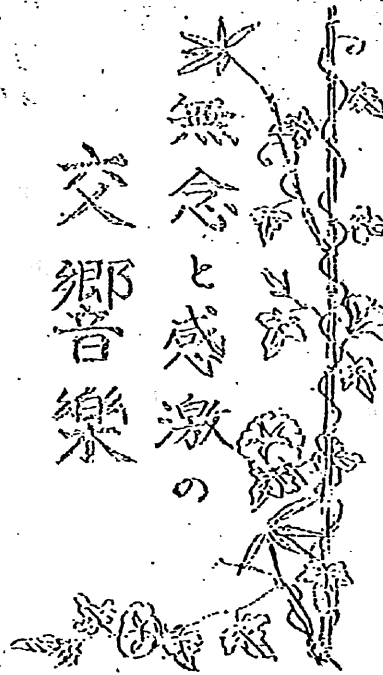 無念と感激の
交響樂